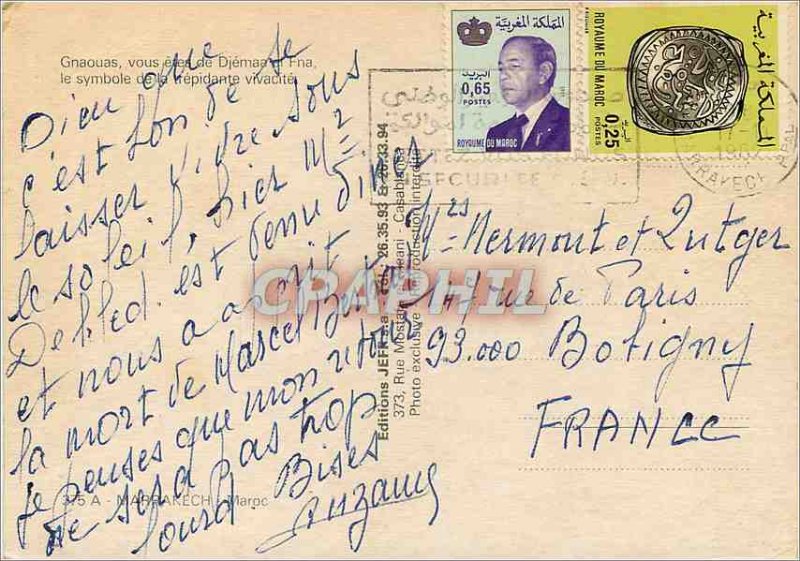 Gnaouas, vous êtes de Djémaa el Fna,
le symbole de la trépidante vivacité.
Dieu que je
c'est bon de se
laisser vivre sous
le soleil, hier Mr
est venu dîner
et nous a appris
la mort de Marcel
je penses que mon retour
ne sera pas trop
lourd. Bises
375 A - MARRAKECH - Maroc
Editions JEFF s.a - Tél. 26.35.93 & 26.33.94
373, Rue Mostafa El Maani - Casablanca
Photo exclusive - Reproduction interdite
المملكة المغربية
البريد
0,65
POSTES
ROYAUME DU MAROC
المملكة المغربية
ROYAUME DU MAROC
0,25
POSTES
البريد
SECURITE
MARRAKECH
Mrs Mermont et Rutger
147 rue de Paris
93.000 Bobigny
FRANCE
CPAPHIL